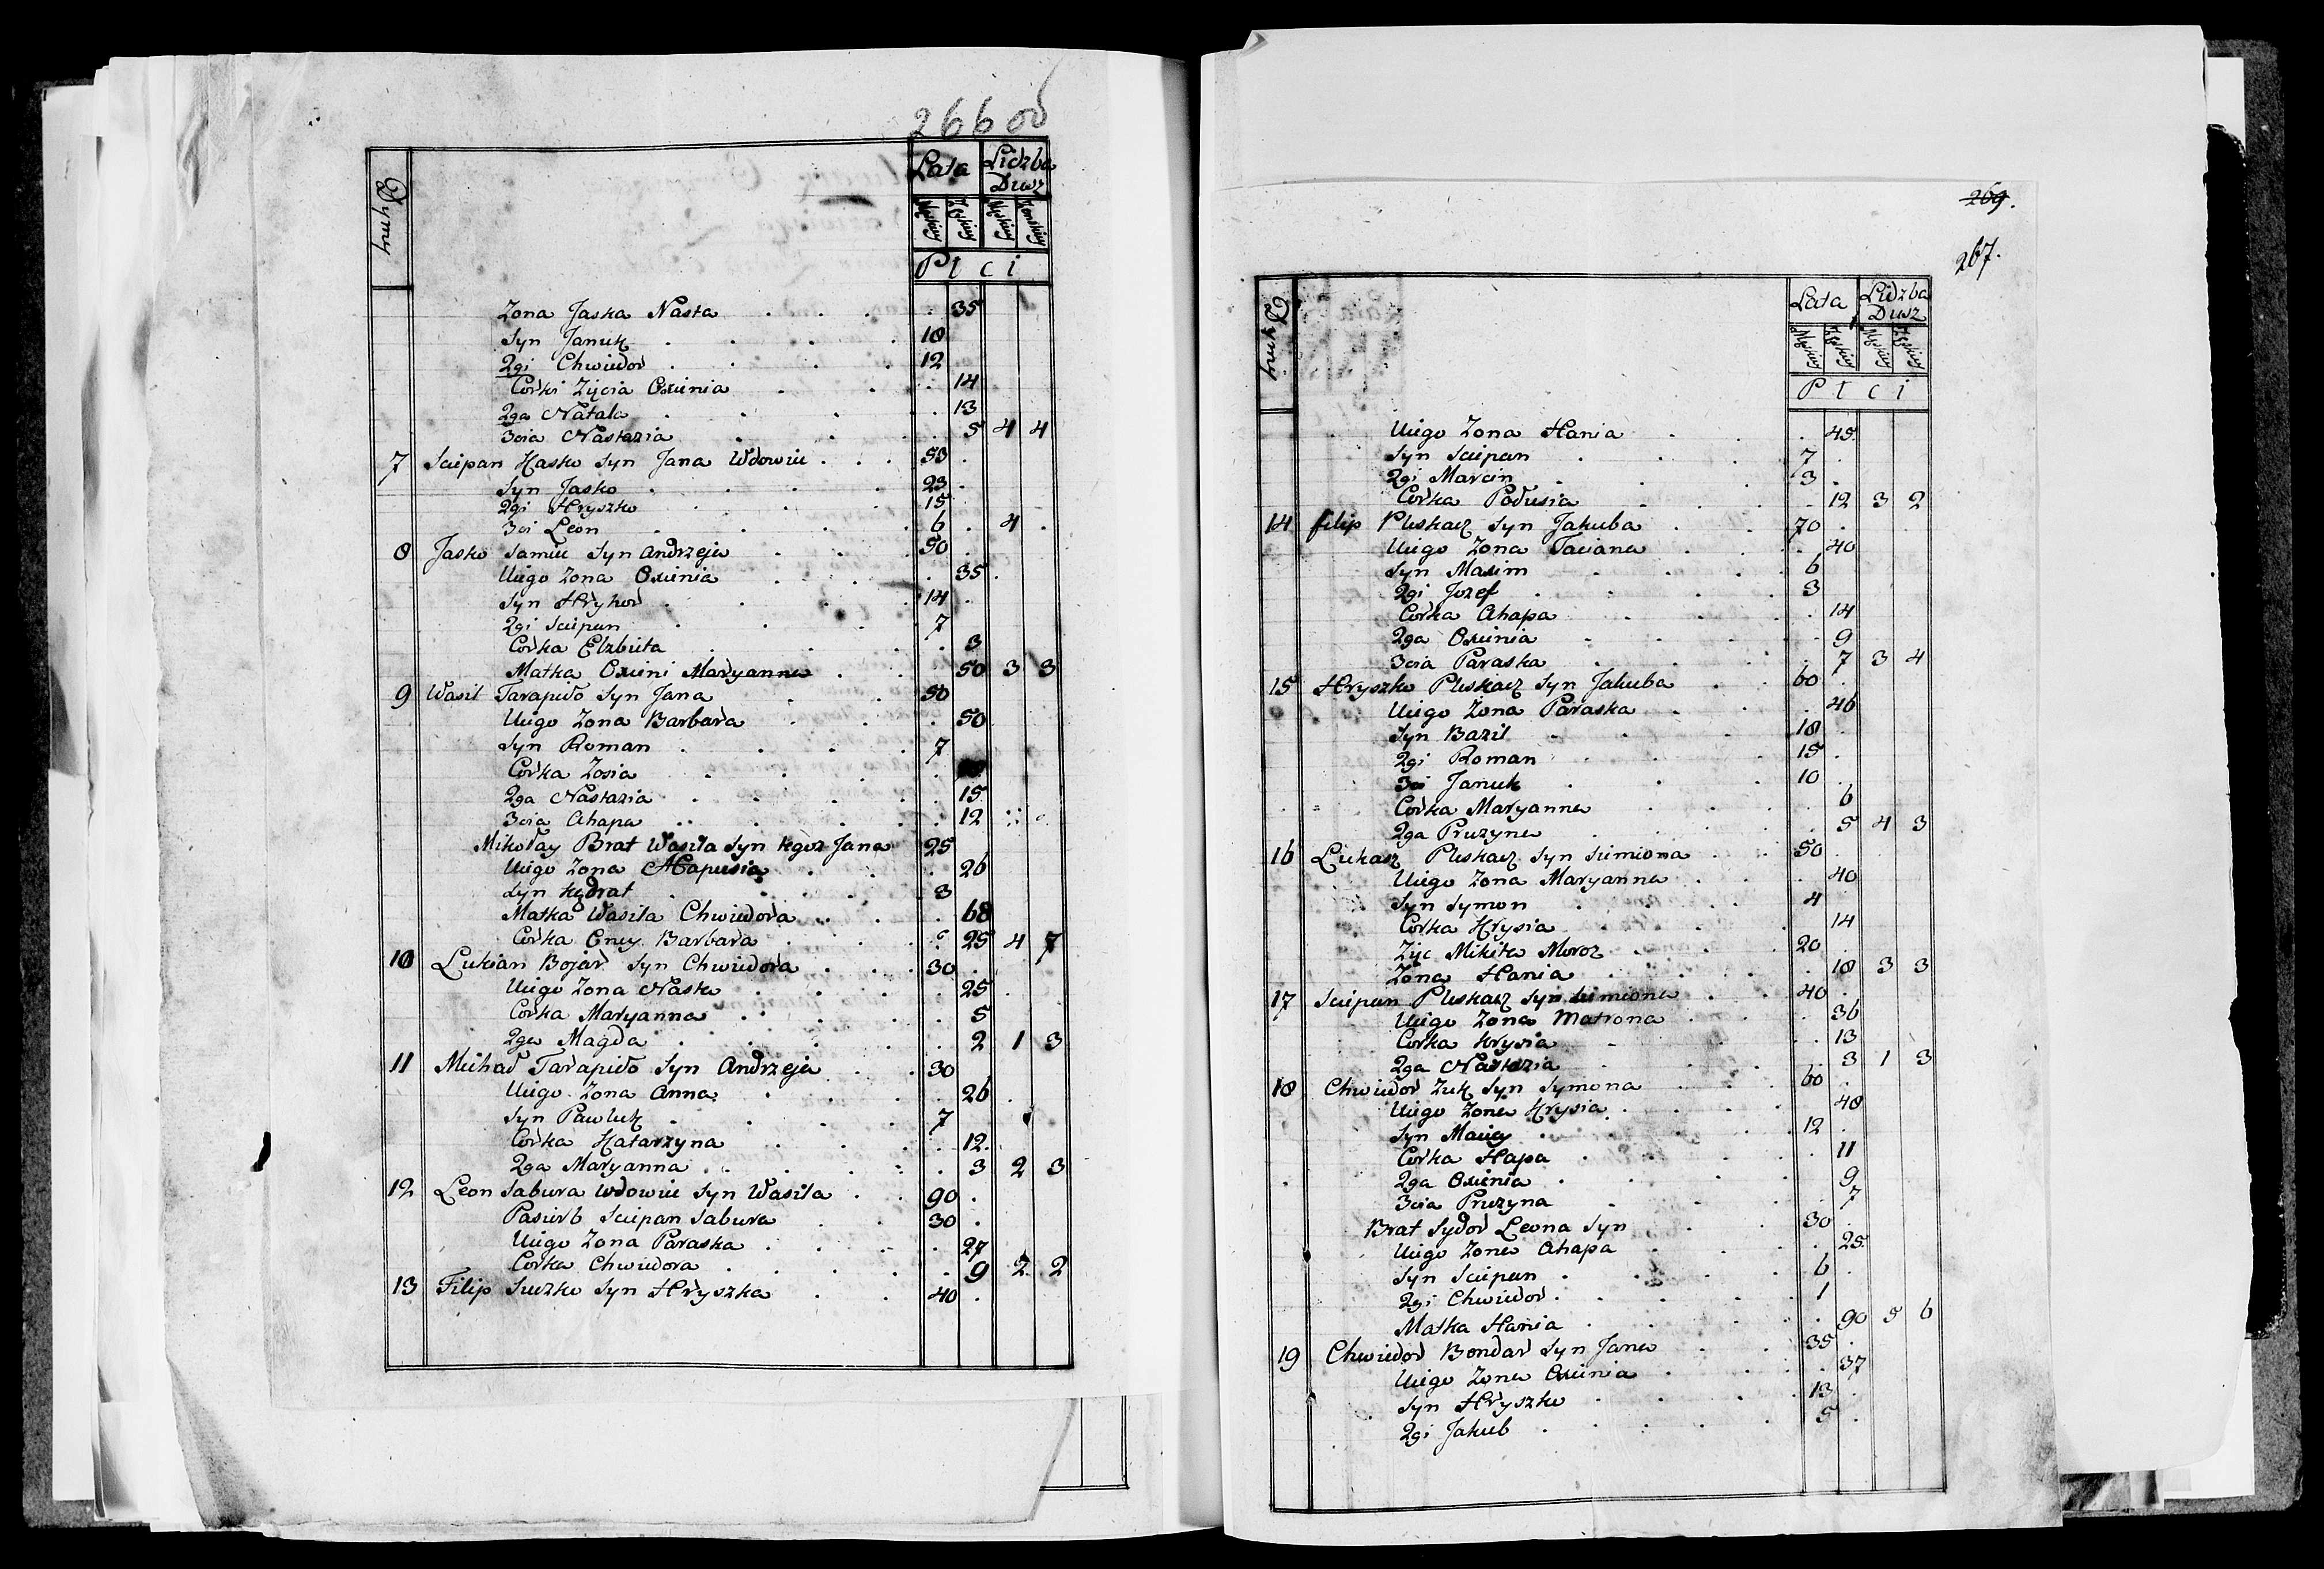 266 об
Dymy Lata Liczba Dusz
Męskiey Żeńskiey Męskiey Żeńskiey
Płci
Zona Jaska Nasta 35
Syn Januk 18
2gi Chwiedor 12
Corki Zięcia Oxienia 14
2ga Natala 13
3cia Nastazia 5 4 4
7 Sciepan Hasko Syn Jana Wdowiec 53
Syn Jasko 23
2gi Hryszko 15
3ci Leon 6 4
8 Jasko Samiec Syn Andrzeja 50
Uiego Zona Oxienia 35
Syn Hryhor 14
2gi Sciepan 7
Corka Elzbieta 3
Matka Oxieni Maryanna 50 3 3
9 Wasil Tarapido Syn Jana 50
Uiego Zona Barbara 50
Syn Roman 7
Corka Zosia
2ga Nastazia 15
3cia Ahapa 12
Mikołay Brat Wasila Syn tegoż Jana 25
Uiego Zona Hapusia 26
Syn Kędrat 3
Matka Wasila Chwiedora 68
Corka Oney Barbara 25 4 7
10 Lukian Bojar Syn Chwiedora 30
Uiego Zona Nasta 25
Corka Maryanna 5
2ga Magda 2 1 3
11 Michał Tarapido Syn Andrzeja 30
Uiego Zona Anna 26
Syn Pawluk 7
Corka Katarzyna 12
2ga Maryanna 3 2 3
12 Leon Sabura Wdowiec Syn Wasila 90
Pasierb Sciepan Sabura 30
Uiego Zona Paraska 27
Corka Chwiedora 9 2 2
13 Filip Suczko Syn Hryszka 40
269.
267.
Dymy Lata Liczba Dusz
Męskiey Żeńskiey Męskiey Żeńskiey
Płci
Uiego Zona Hania 45
Syn Sciepan 7
2gi Marcin 3
Corka Podusia 12 3 2
14 filip Pleskacz Syn Jakuba 70
Uiego Zona Taciana 40
Syn Maxim 6
2gi Jozef 3
Corka Ahapa 14
2ga Oxienia 9
3cia Paraska 7 3 4
15 Hryszko Pleskacz Syn Jakuba 60
Uiego Zona Paraska 46
Syn Bazil 18
2gi Roman 15
3ci Januk 10
Corka Maryanna 6
2ga Pruzyna 5 4 3
16 Lukasz Pleskacz Syn Siemiona 50
Uiego Zona Maryanna 40
Syn Symon 4
Corka Hrysia 14
Zięc Mikita Moroz 20
Zona Hania 18 3 3
17 Sciepan Pleskacz Syn Siemiona 40
Uiego Zona Matrona 36
Corka Krysia 13
2ga Nastazia 3 1 3
18 Chwiedor Zuk Syn Symona 60
Uiego Zona Krysia 48
Syn Maciey 12
Corka Hapa 11
2ga Oxienia 9
3cia Pruzyna 7
Brat Sydor Leona Syn 30
Uiego Zona Ahapa 25
Syn Sciepan 6
2gi Chwiedor 1
Matka Hania 90 5 6
19 Chwiedor Bondar Syn Jana 35
Uiego Zona Oxienia 37
Syn Hryszko 13
2gi Jakub 5